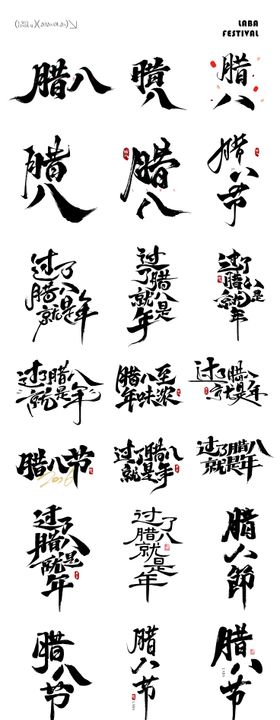 LABA
FESTIVAL
腊八
腊八
腊八
腊八
腊八
腊八节
过了腊八就是年
过了腊八就是年
过了腊八就是年
过了腊八就是年
腊八至
年味浓
过了腊八
就是年
腊八节
过了腊八
就是年
过了腊八
就是年
过了腊八就是年
过了腊八就是年
腊八節
腊八节
腊八节
腊八节